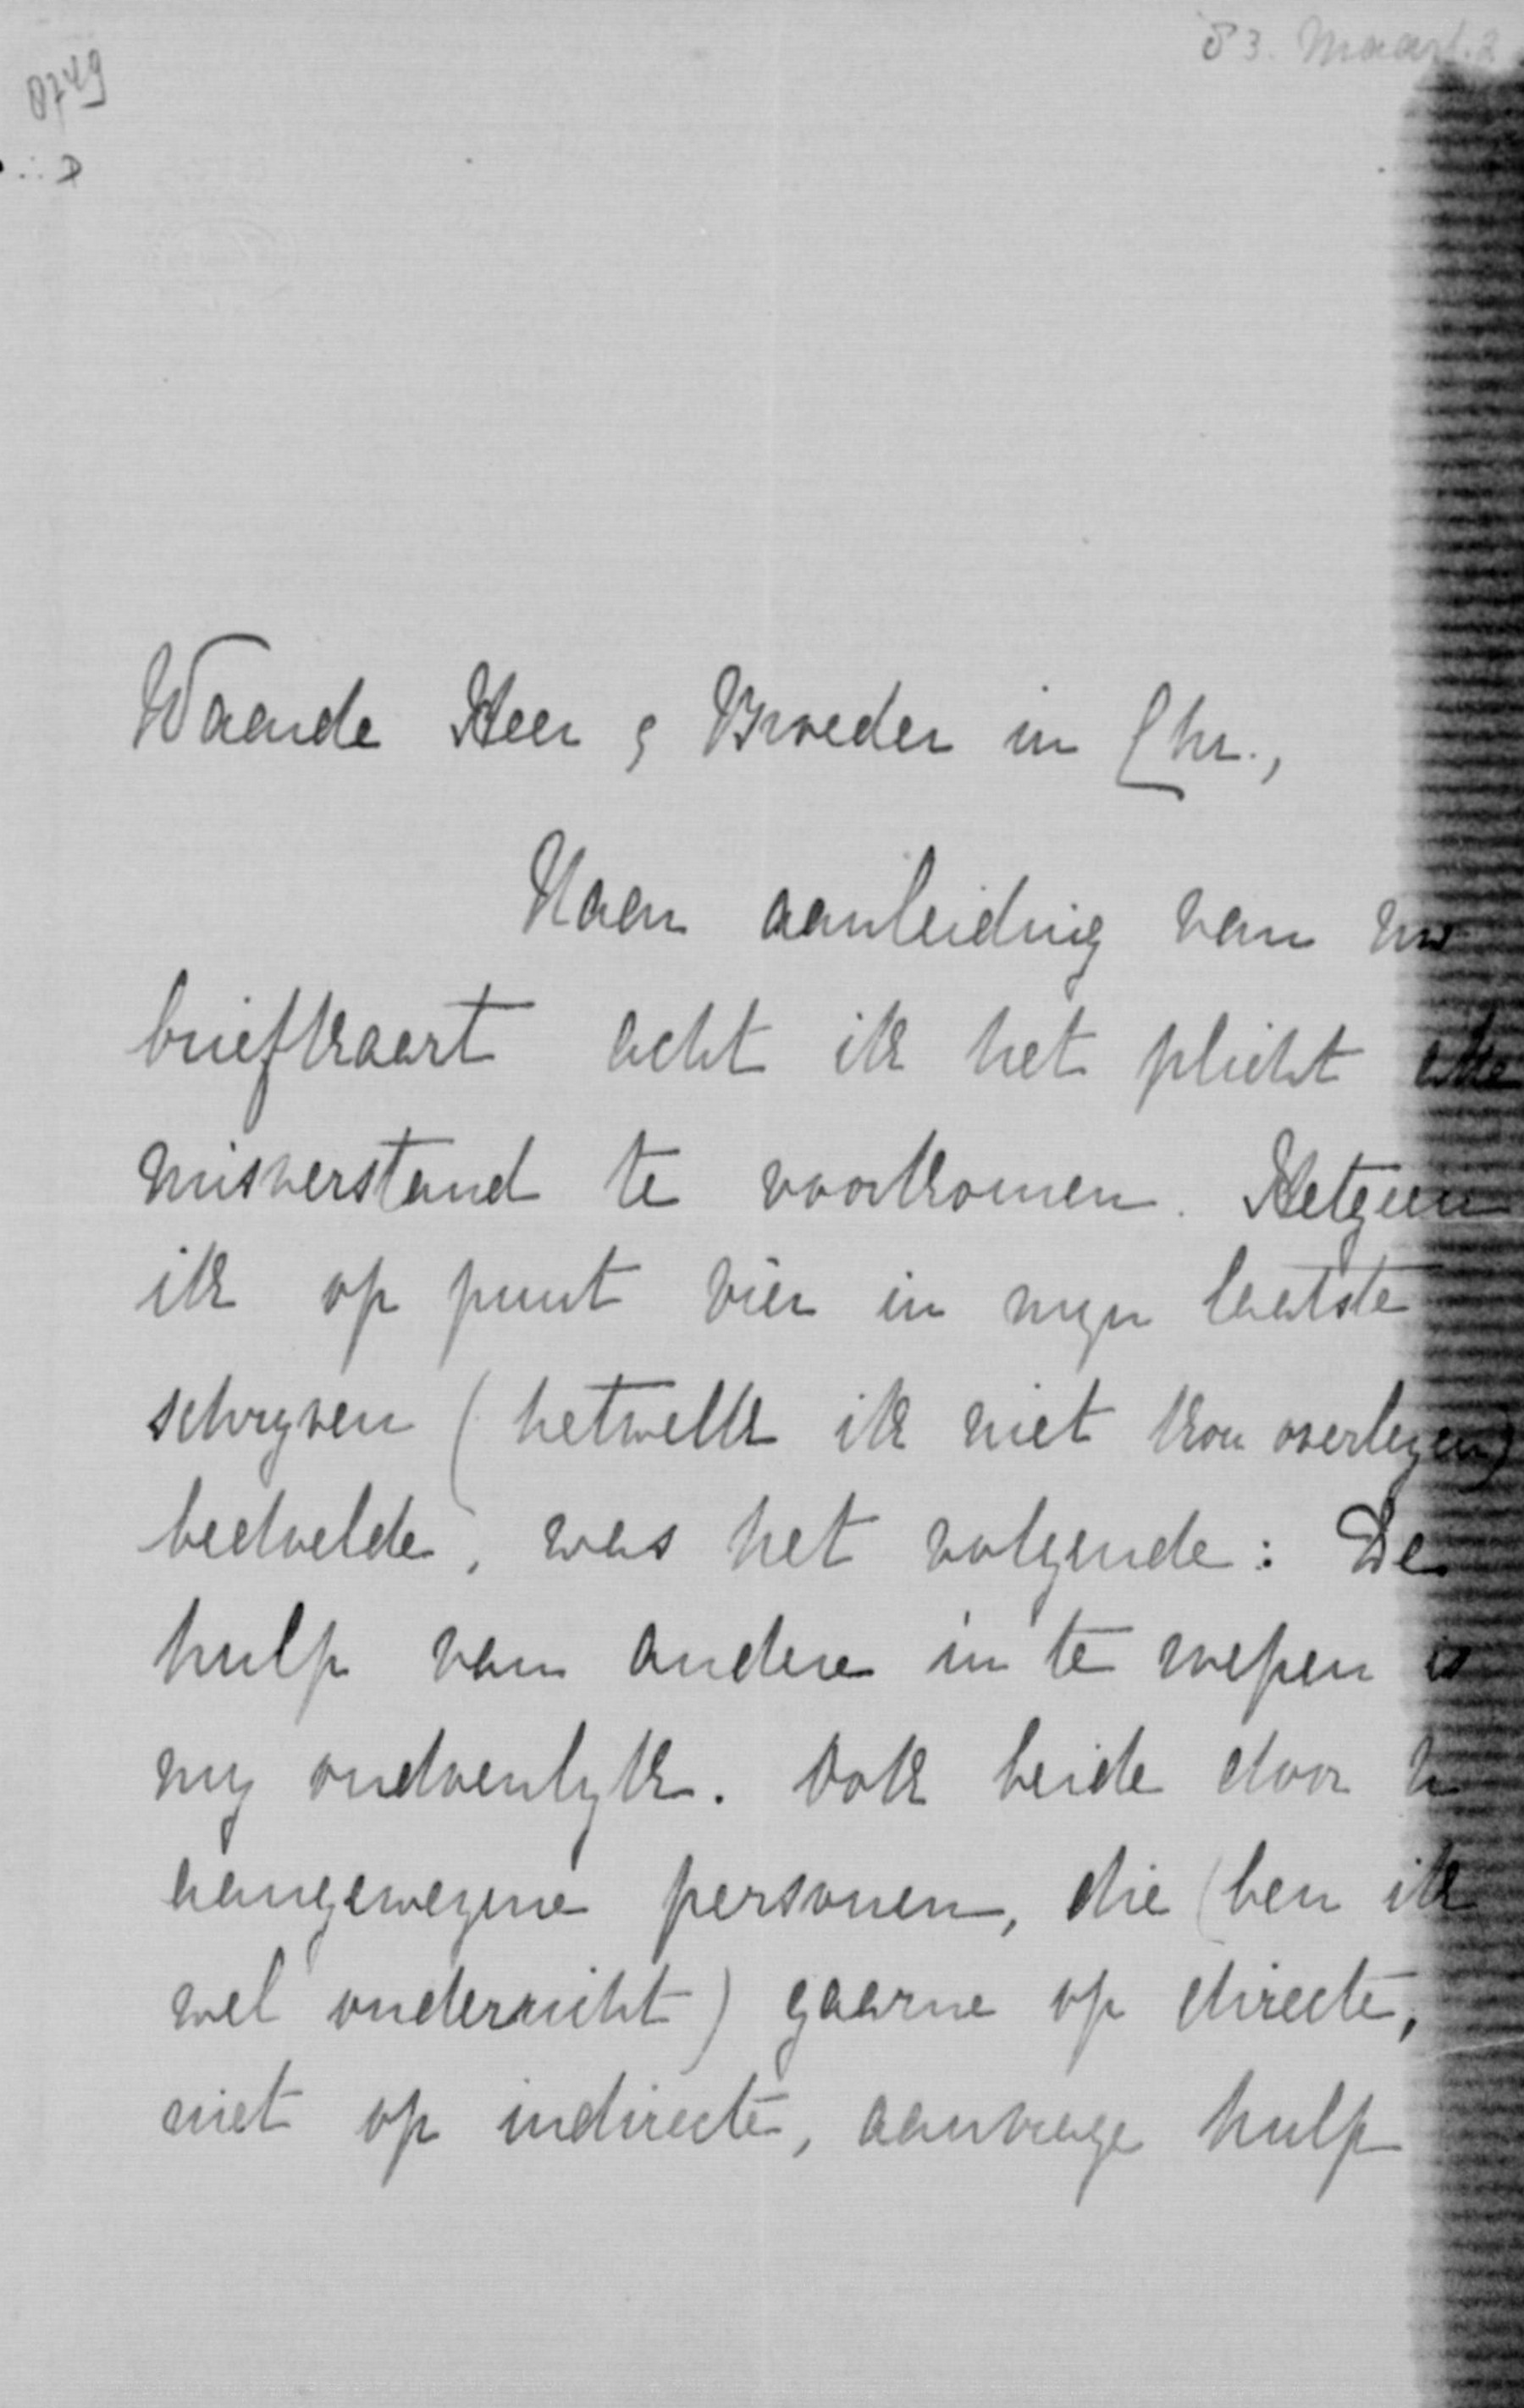 83. Maart. 2
0749
Waarde Heer & Broeder in Chr.,
Naar aanleiding van uw
briefkaart acht ik het plicht elke
misverstand te voorkomen. Hetgeen
ik op punt vier in mijn laatste
schrijven (hetwelk ik niet kon overlezen)
bedoelde, was het volgende: De
hulp van andere in te roepen is
mij ondoenlijk. Ook beide door u
aangewezene personen, die (ben ik
wel onderricht) gaarne op directe,
niet op indirecte, aanvrage hulp